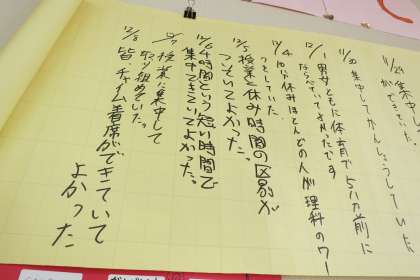 11/29 集
ができていた。
11/30 集中してかんそうしていた
12/1 男女ともに体育で5分前に
ならべていてよかったです
12/4 10分休みほとんどの人が理科のワー
クをしていた。
12/5 授業と休み時間の区別が
ついていてよかった。
12/6 4時間という短い時間で
集中できていてよかった。
12/7 授業に集中して
取り組めていた。
12/8 皆、チャイム着席ができていて
よかった